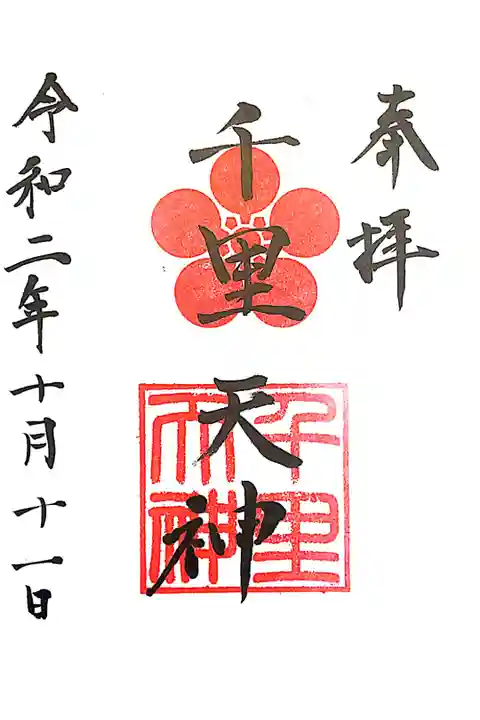 奉拝
千里天神
千里
天神
令和二年十月十一日